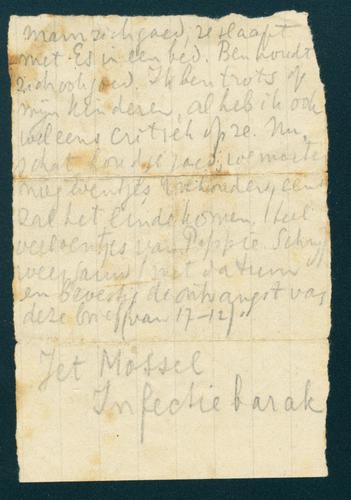 mam zich goed, ze slaapt
met Es in een bed. Ben houdt
zich ook goed. Ik ben trots op
mijn kinderen, al heb ik ook
wel eens critiek op ze. Nu,
schat houd je goed, we moeten
nog eventjes volhouden, eens
zal het einde komen. Heel
veel zoentjes van Pappie. Schrijf
weer gauw met datum
en bevestig de ontvangst van
deze brief (van 17-12)
Jet Mossel
Infectiebarak